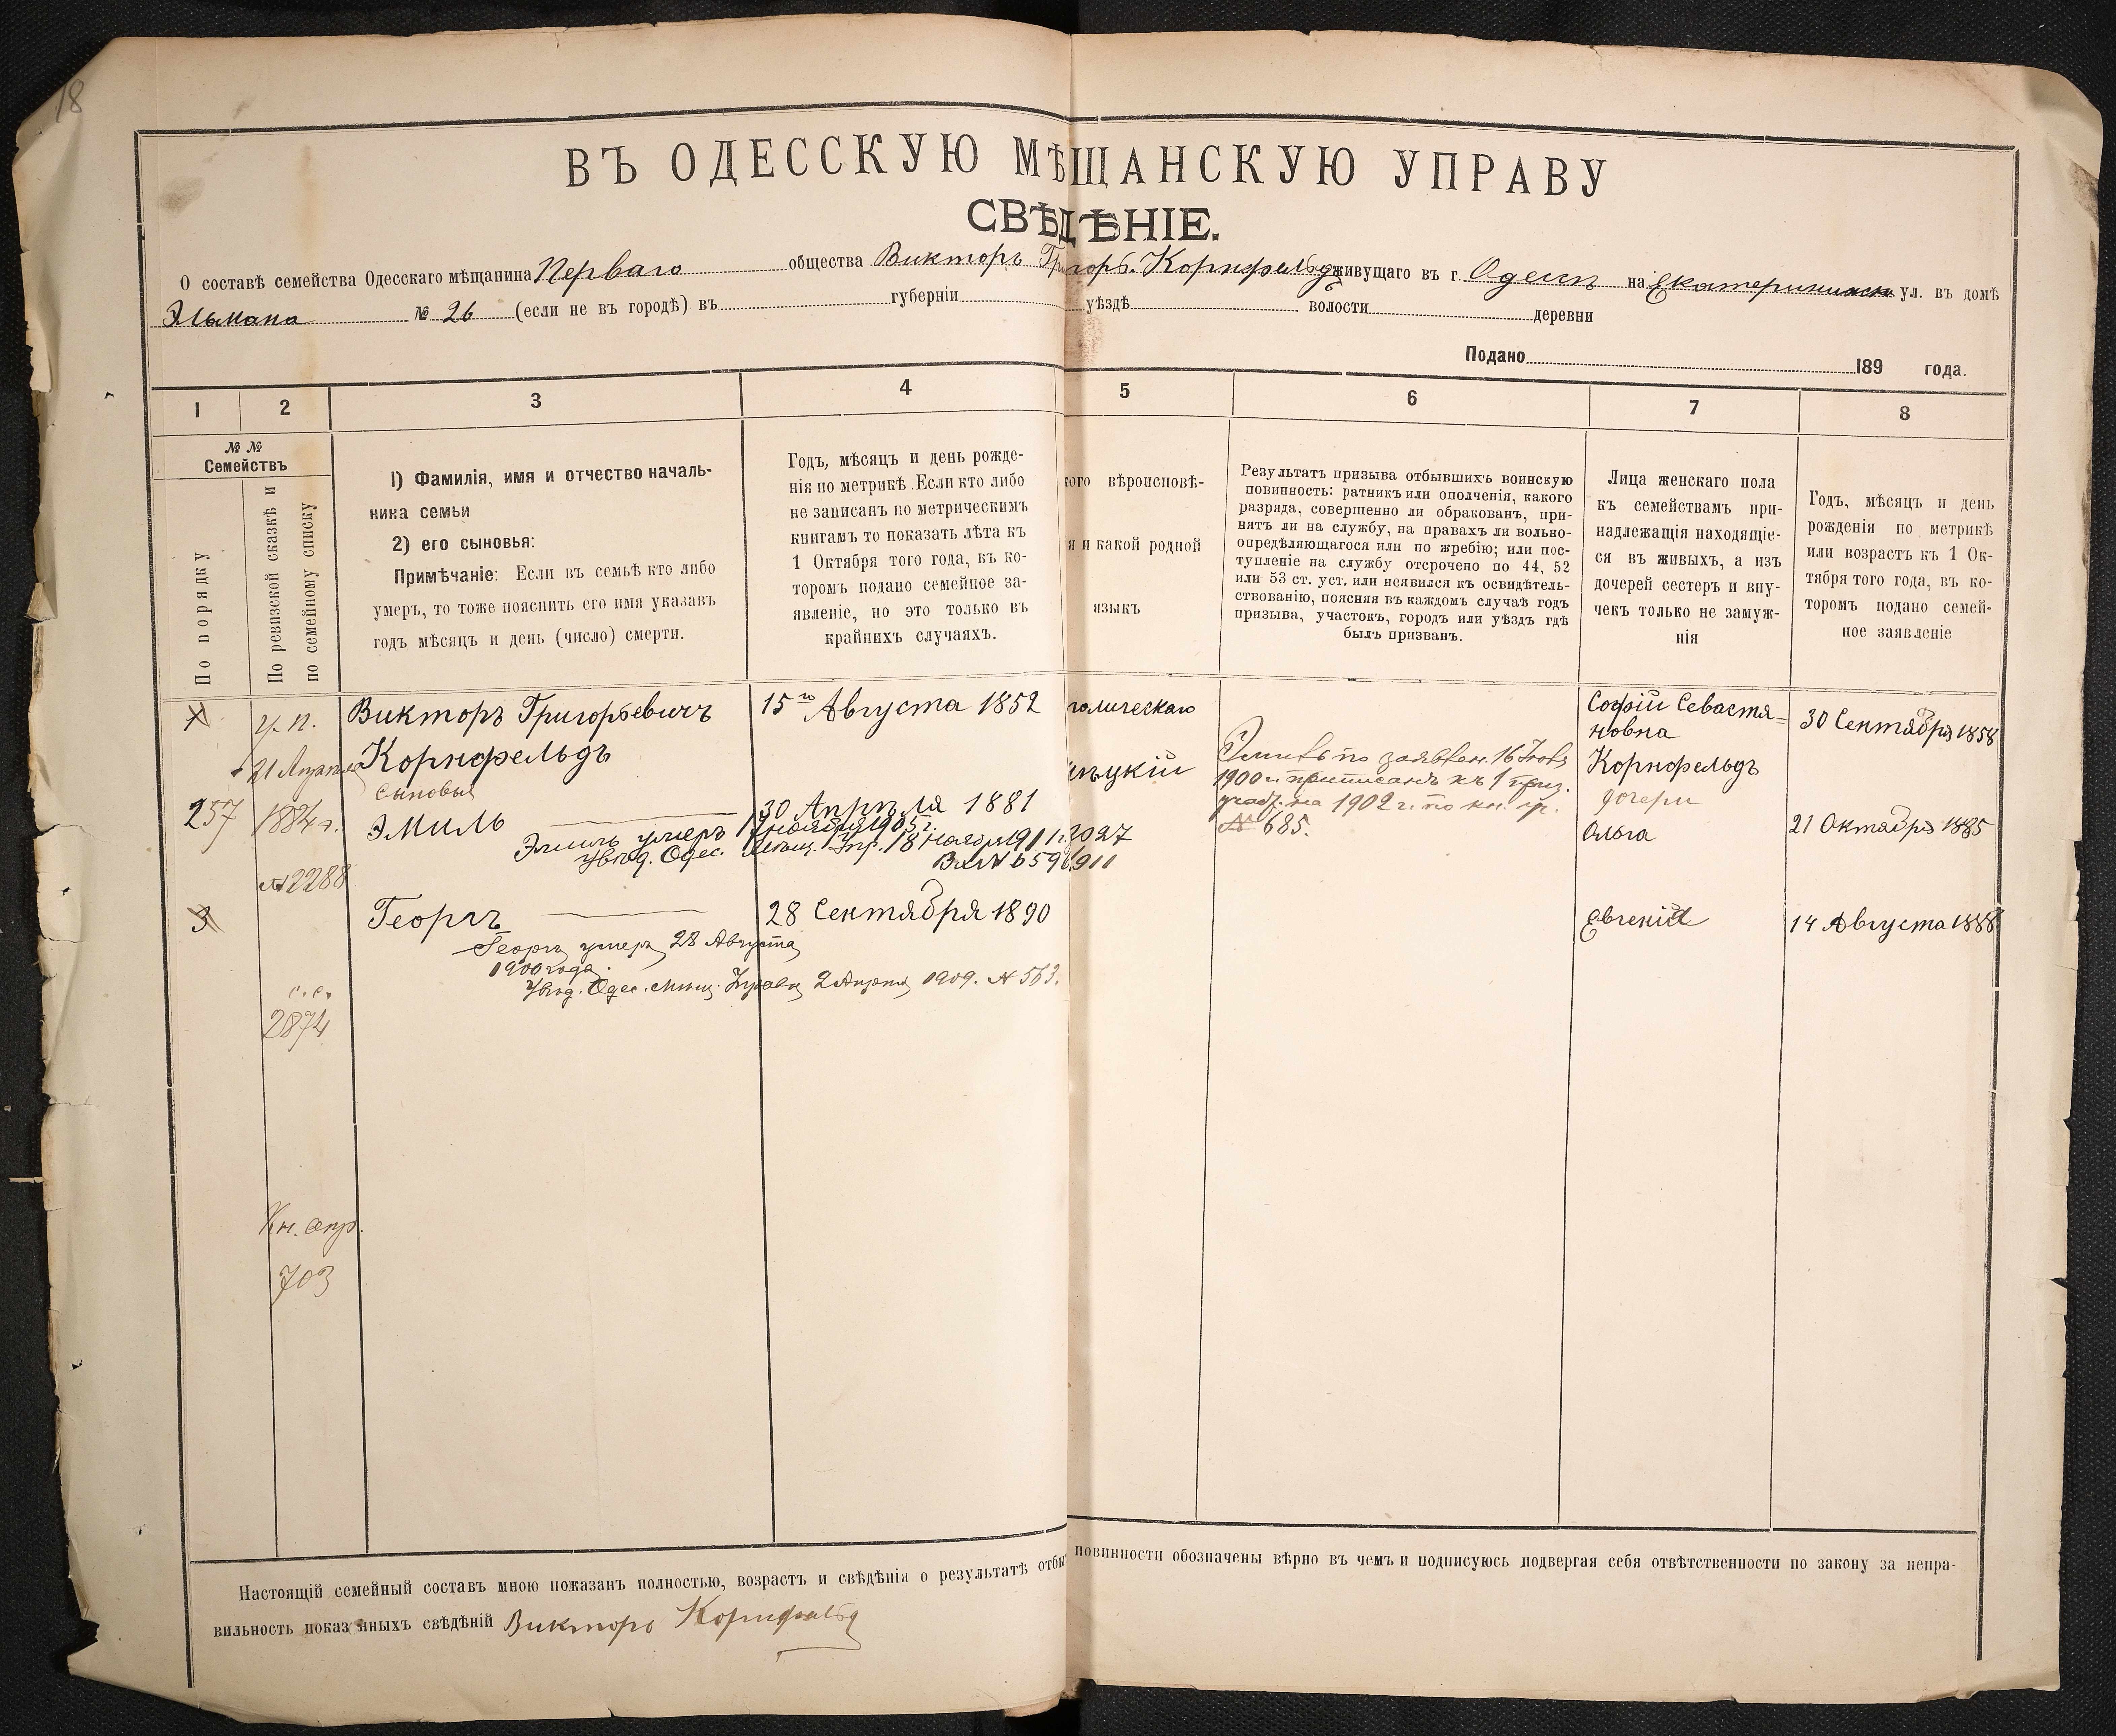 18
ВЪ ОДЕССКУЮ МѢЩАНСКУЮ УПРАВУ
СВѢДѢНІЕ.
О составѣ семейства Одесскаго мѣщанина Перваго общества Викторъ Григорь. Корнфельдъ живущаго въ г. Одессѣ на Екатерининск ул. въ домѣ
Эльмана № 26 (если не въ городѣ) въ губерніи уѣздѣ волости деревни
Подано 189 года.
1 2 3 4 5 6 7 8
№ №
Семействъ
По порядку
По ревизской сказкѣ и
по семейному списку
1) Фамилія, имя и отчество началь-
ника семьи
2) его сыновья:
Примѣчаніе: Если въ семьѣ кто либо
умеръ, то тоже пояснить его имя указавъ
годъ мѣсяцъ и день (число) смерти.
Годъ, мѣсяцъ и день рожде-
нія по метрикѣ. Если кто либо
не записанъ по метрическимъ
книгамъ то показать лѣта къ
1 Октября того года, въ ко-
торомъ подано семейное за-
явленіе, но это только въ
крайнихъ случаяхъ.
кого вѣроисповѣ-
ія и какой родной
языкъ
Результатъ призыва отбывшихъ воинскую
повинность: ратникъ или ополченія, какого
разряда, совершенно ли обракованъ, при-
нятъ ли на службу, на правахъ ли вольно-
опредѣляющагося или по жребію; или пос-
тупленіе на службу отсрочено по 44, 52
или 53 ст. уст, или неявился къ освидѣтель-
ствованію, поясняя въ каждомъ случаѣ годъ
призыва, участокъ, городъ или уѣздъ гдѣ
былъ призванъ.
Лица женскаго пола
къ семействамъ при-
надлежащія находящіе-
ся въ живыхъ, а изъ
дочерей сестеръ и вну-
чекъ только не замуж-
нія
Годъ, мѣсяцъ и день
рожденія по метрикѣ
или возрастъ къ 1 Ок-
тября того года, въ ко-
торомъ подано семей-
ное заявленіе
у. п.
21 Апрѣля
257 1884 г.
№ 2288
3
с. с.
2874
Кн. апр.
703
Викторъ Григорьевичъ 15го Августа 1852
Корнфельдъ
сыновья
Эмиль 30 Апрѣля 1881
Эмиль умеръ 1 ноября 1905 г.
Увѣд. Одес. Мѣщ. Упр. 18 Ноября 1911 г. 2027
Вх. № 659 1911
Георгъ 28 Сентября 1890
Георгъ умеръ 28 Августа
1900 года.
Увѣд. Одес. Мѣщ. Управы 2 Апрѣля 1909. № 563.
толическаго
мѣцкій
Эмиль по заявлен. 16 Ноября
1900 г. приписанъ къ 1 приз.
участ. на 1902 г. по кн. пр.
№ 685.
Софія Севастя=
новна
Корнфельдъ
30 Сентября 1858
дочери
Ольга 21 Октября 1885
Евгенія 14 Августа 1888
Настоящій семейный составъ мною показанъ полностью, возрастъ и свѣдѣнія о результатѣ отбы повинности обозначены вѣрно въ чемъ и подписуюсь подвергая себя отвѣтственности по закону за непра-
вильность показанныхъ свѣдѣній Викторъ Корнфельд